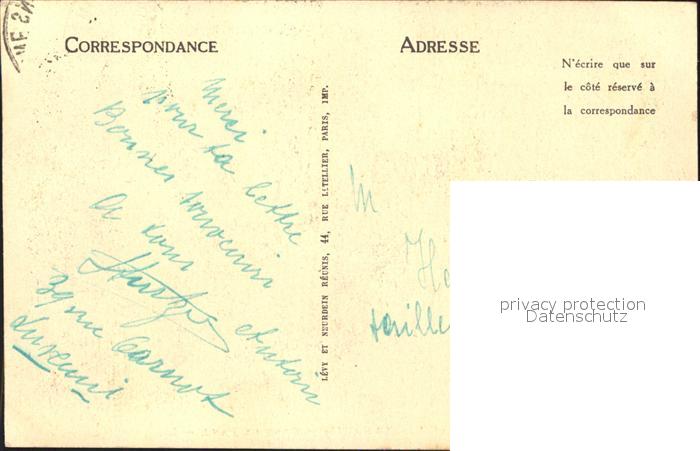 CORRESPONDANCE
ADRESSE
N'écrire que sur
le côté réservé à
la correspondance
Merci
pour ta lettre
Bonnes souvenir
A vous
Antoin
39 rue Carnot
LÉVY ET NEURDEIN RÉUNIS, 44, RUE LETELLIER, PARIS, IMP.
M
taille
privacy protection
Datenschutz